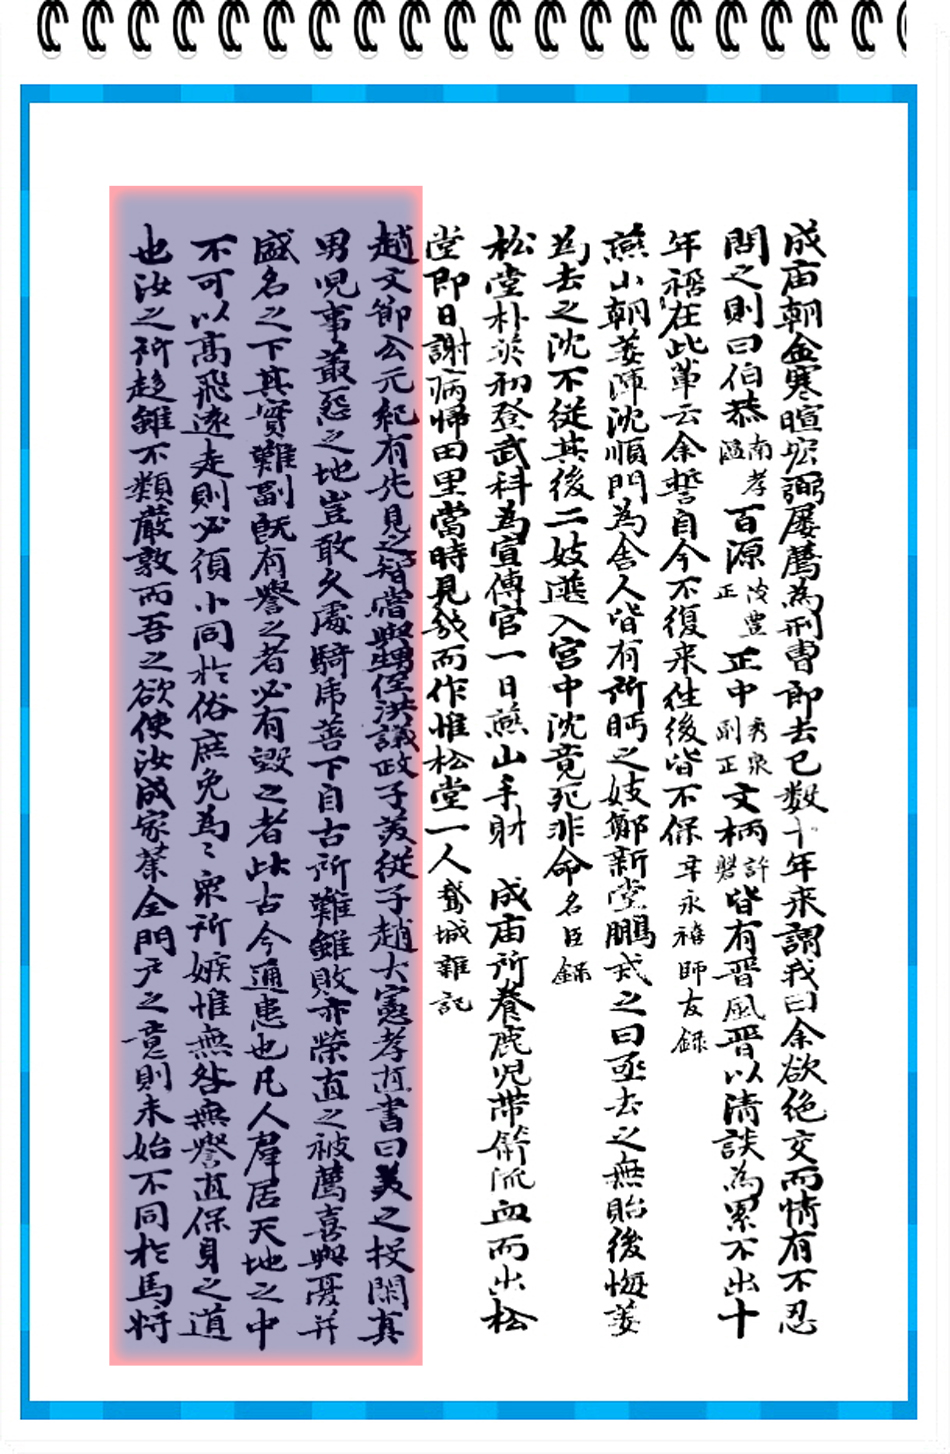 成庙朝金寒暄宏弼屡薦為刑曹郎去已数十年来謂我曰余欲绝交而情有不忍
問之則曰伯恭南孝温百源茂豊正正中秀泉副正文柄許磐皆有晋風晋以清談為累不出十
年禍在此輩云余誓自今不復来往後皆不保辛永禧師友録
燕山朝姜渾沈順門為舍人皆有所眄之妓鄭新堂鵬戒之曰亟去之無貽後悔姜
為去之沈不從其後二妓選入宫中沈竟死非命名臣録
松堂朴英初登武科為宣傳官一日燕山手射 成庙所養鹿児帶箭流血而出松
堂即日謝病帰田里當時見幾而作惟松堂一人鵞城雜記
趙文節公元紀有先見之智嘗與甥侄洪議政子美從子趙大憲孝直書曰美之投閑真
男児事最惡之地豈敢久處騎乕善下自古所難雖敗亦榮直之被薦喜與憂并
盛名之下其實難副既有譽之者必有毀之者此古今通患也凡人羣居天地之中
不可以高飛遠走則必須小同於俗庶免為〻衆所嫉惟無咎無譽直保身之道
也汝之所趍雖不類嚴敦而吾之欲使汝成家業全門户之意則未始不同於馬将